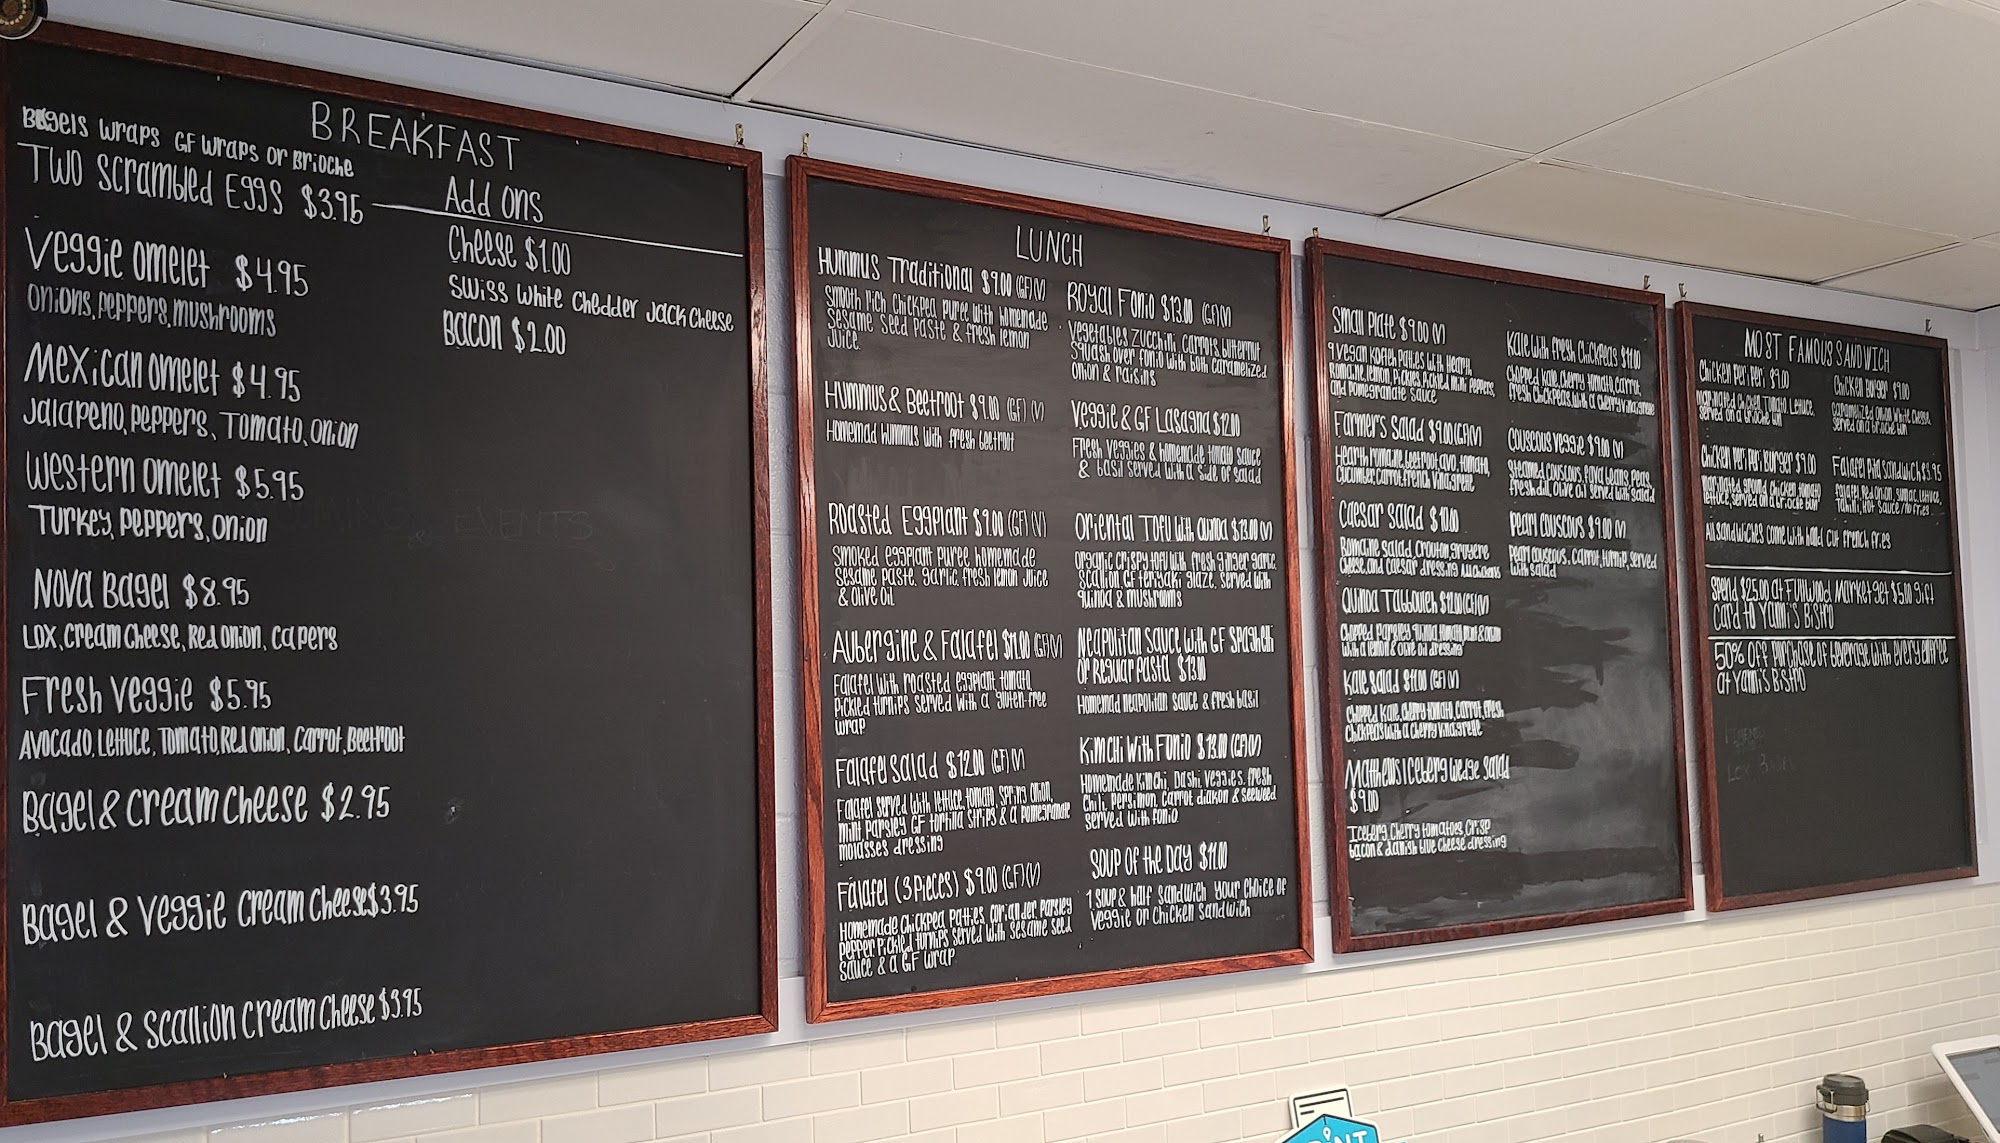 BREAKFAST
Bagels Wraps GF Wraps or Brioche
Two Scrambled Eggs $3.95
Veggie Omelet $4.95
Onions, Peppers, Mushrooms
Mexican Omelet $4.95
Jalapeno, Peppers, Tomato, Onion
Western Omelet $5.95
Turkey, Peppers, Onion
Nova Bagel $8.95
Lox, Cream Cheese, Red Onion, Capers
Fresh Veggie $5.95
Avocado, Lettuce, Tomato, Red Onion, Carrot, Beetroot
Bagel & Cream Cheese $2.95
Bagel & Veggie Cream Cheese $3.95
Bagel & Scallion Cream Cheese $3.95
Add Ons
Cheese $1.00
Swiss White Chedder Jack Cheese
Bacon $2.00
EVENTS
LUNCH
Hummus Traditional $9.00 (GF)(V)
Smooth rich chickpea puree with homemade
Sesame Seed Paste & fresh lemon
Juice.
Hummus & Beetroot $9.00 (GF) (V)
Homemad hummus with fresh beetroot
Roasted Eggplant $9.00 (GF)(V)
Smoked eggplant puree, homemade
Sesame paste, garlic, fresh lemon Juice
& Olive Oil
Aubergine & Falafel $11.00 (GF)(V)
Falafel with roasted eggplant tomato,
pickled turnips served with a gluten-free
wrap
Falafel Salad $12.00 (GF)(V)
Falafel served with lettuce, tomato, spring onion,
mint, parsley GF tortilla strips & a pomegranate
molasses dressing
Falafel (3 Pieces) $9.00 (GF)(V)
Homemade Chickpea Patties, coriander, Parsley
Pepper, Pickled turnips served with sesame seed
sauce & a GF wrap
Royal Fonio $13.00 (GF)(V)
Vegetables Zucchini, carrots, butternut
squash over fonio with both caramelized
onion & raisins
Veggie & GF Lasagna $12.00
Fresh veggies & homemade tomato sauce
& basil served with a side of salad
Oriental Tofu with Quinoa $13.00 (V)
Organic crispy tofu with fresh ginger garlic,
Scallion, GF teriyaki glaze, served with
quinoa & mushrooms
Neapolitan Sauce with GF Spaghetti
or Regular Pasta $13.00
Homemad neapolitan sauce & fresh basil
Kimchi with Fonio $13.00 (GF)(V)
Homemade Kimchi, Dashi, veggies, fresh
Chili, Persimon, Carrot diakon & seeweed
served with fonio
Soup of the Day $11.00
1 soup & half sandwich your choice of
Veggie or chicken sandwich
Small Plate $9.00 (V)
9 Vegan Kofteh Patties with Hearth
Romaine, lemon, Pickles, Pickled mini peppers,
and Pomegranate sauce
Farmer's Salad $9.00 (GF)(V)
Hearth romaine, beetroot, avo, tomato,
Cucumber, carrot, french vinaigrette
Caesar Salad $10.00
Romaine salad, Crouton, gruyere
Cheese, and Caesar dressing
Quinoa Tabbouleh $12.00 (GF)(V)
Chopped Parsley, quinoa, tomato, mint & onion
with a lemon & olive oil dressing
Kale Salad $11.00 (GF)(V)
Chopped Kale, cherry tomato, carrot, fresh
Chickpeas with a cherry vinaigrette
Matthews Iceberg Wedge Salad
$9.00
Iceberg, Cherry tomatoes, Crisp
bacon & danish blue cheese dressing
Kale with Fresh Chickpeas $11.00
Chopped kale, cherry tomato, carrot,
fresh chickpeas, with a cherry vinaigrette
Couscous Veggie $9.00 (V)
Steamed couscous, fava beans, peas,
fresh dill, olive oil served with salad
Pearl Couscous $9.00 (V)
Pearl couscous, carrot, turnip, served
with salad
MOST FAMOUS SANDWICH
Chicken Peri Peri $9.00
marinated chicken, Tomato, Lettuce,
served on a brioche bun
Chicken Peri Peri Burger $9.00
marinated ground chicken, tomato
lettuce, served on a brioche bun
Chicken Burger $9.00
Caramelized onion, white cheese,
served on a brioche bun
Falafel Pita Sandwich $3.95
falafel, red onion, sumac, lettuce,
tahini, hot sauce / no fries
All sandwiches come with hand cut french fries
Spend $25.00 at Fullwood Market get $5.00 gift
card to Yanni's Bistro
50% off purchase of beverage with every entree
at Yanni's Bistro